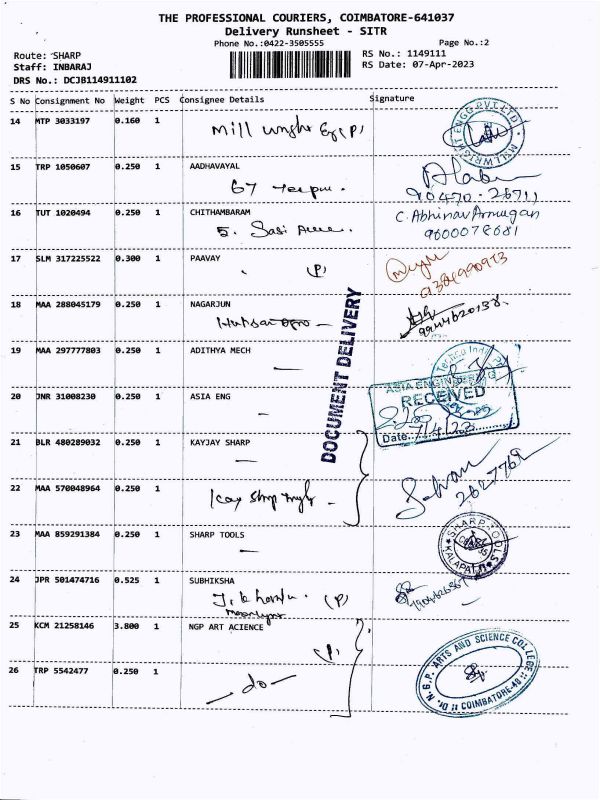 THE PROFESSIONAL COURIERS, COIMBATORE-641037
Delivery Runsheet - SITR
Phone No.:0422-3505555 Page No.:2
Route: SHARP RS No.: 1149111
Staff: INBARAJ RS Date: 07-Apr-2023
DRS No.: DCJB114911102
S No Consignment No Weight PCS Consignee Details Signature
14 MTP 3033197 0.160 1
(P)
MILLWRIGHT ENGG PVT LTD
15 TRP 1050607 0.250 1 AADHAVAYAL
67
90470-26711
16 TUT 1020494 0.250 1 CHITHAMBARAM C. Abhinav Arumugan
5. Sasi 9600078681
17 SLM 317225522 0.300 1 PAAVAY
(P) 9384990913
18 MAA 288045179 0.250 1 NAGARJUN
9944620138
19 MAA 297777803 0.250 1 ADITHYA MECH
DOCUMENT DELIVERY
20 JNR 31008230 0.250 1 ASIA ENG
ASIA ENGINEERING
RECEIVED
Date 7/4/23
21 BLR 480289032 0.250 1 KAYJAY SHARP
22 MAA 570048964 0.250 1
Kay Sharp
2627768
23 MAA 859291384 0.250 1 SHARP TOOLS
SHARP TOOLS
KALAPATTI
24 JPR 501474716 0.525 1 SUBHIKSHA
(P)
25 KCM 21258146 3.800 1 NGP ART ACIENCE
(P)
26 TRP 5542477 0.250 1
do
Dr. N.G.P. ARTS AND SCIENCE COLLEGE
COIMBATORE-48